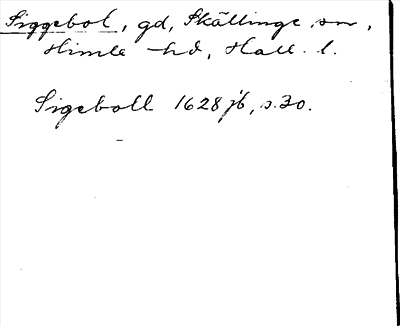 Siggebol, gd, Skällinge sn,
Himle hd, Hall. l.
Sigeboll 1628 jb, s. 30.